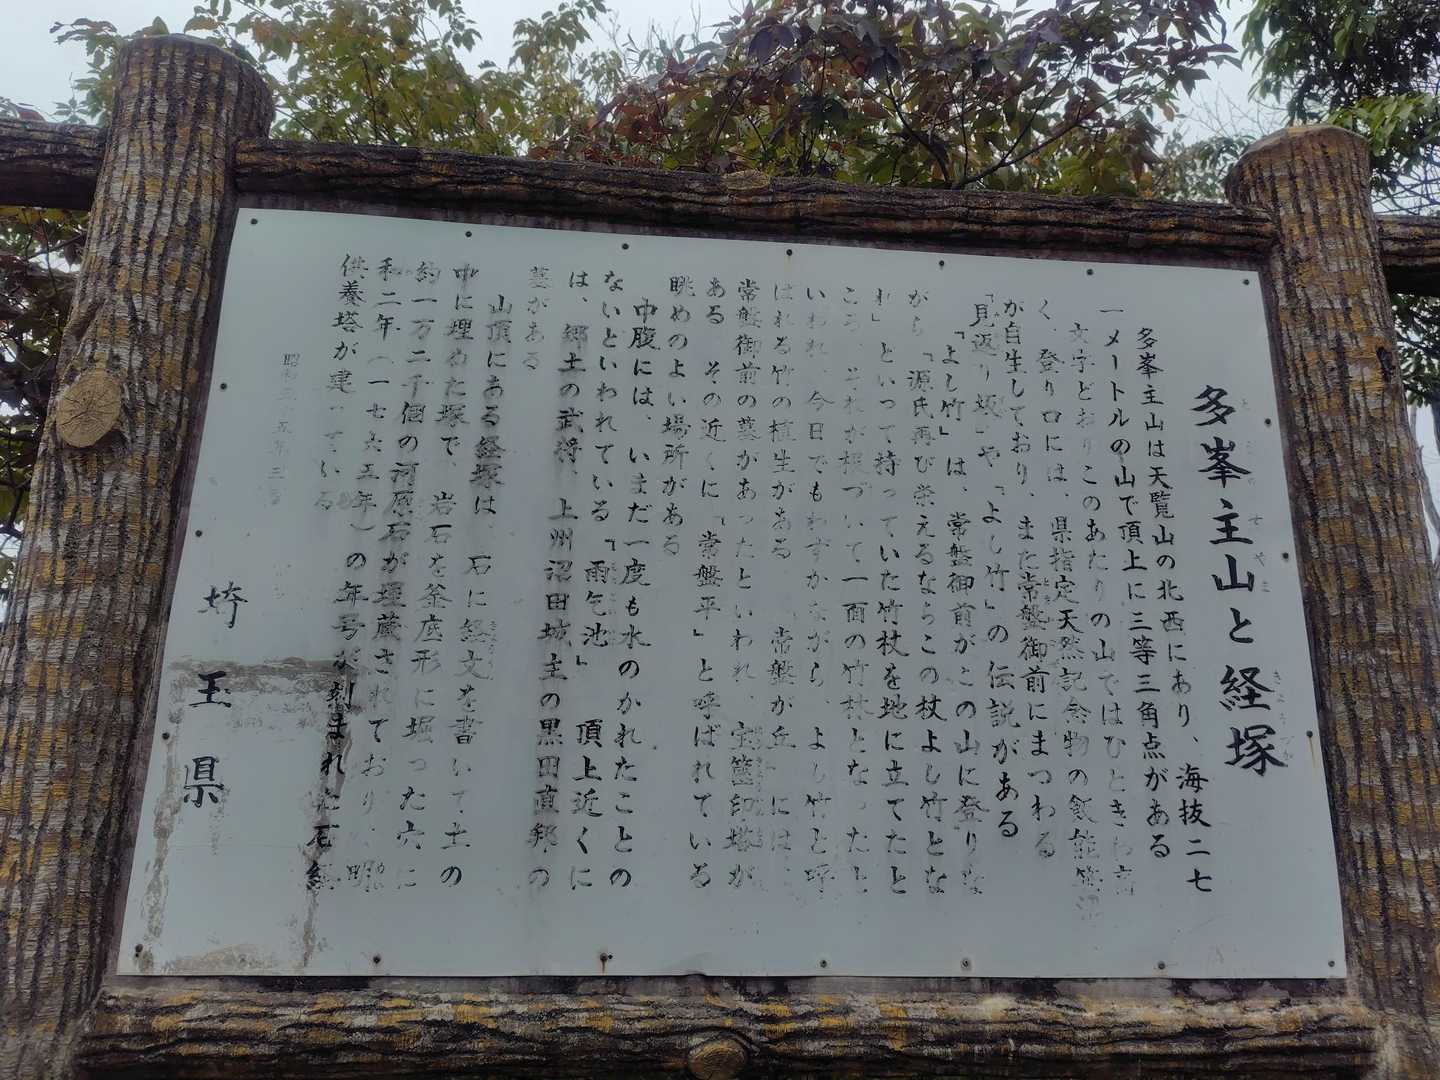 多峯主山と経塚
とうのすやま
きょうづか
多峯主山は天覧山の北西にあり、海抜二七
一メートルの山で頂上に三等三角点がある
文字どおりこのあたりの山ではひときわ高
く、登り口には、県指定天然記念物の飯能笹
が自生しており、また常盤御前にまつわる
「見返り坂」や「よし竹」の伝説がある
「よし竹」は、常盤御前がこの山に登りな
がら「源氏再び栄えるならこの杖よし竹とな
れ」といって持っていた竹杖を地に立てたと
ころ、それが根づいて一面の竹林となったと
いわれ、今日でもわずかながら、よし竹と呼
ばれる竹の植生がある 常盤が丘」には、
常盤御前の墓があったといわれ、宝篋印塔が
ある その近くに「常盤平」と呼ばれている
眺めのよい場所がある
中腹には、いまだ一度も水のかれたことの
ないといわれている「雨乞池」 頂上近くに
は、郷土の武将、上州沼田城主の黒田直邦の
墓がある
山頂にある経塚は 石に経文を書いて土の
中に埋めた塚で、岩石を釜底形に堀った穴に
約一万二千個の河原石が埋蔵されており、明
和二年(一七六五年)の年号が刻まれた石経
供養塔が建っている
昭和五十五年三月
埼玉県